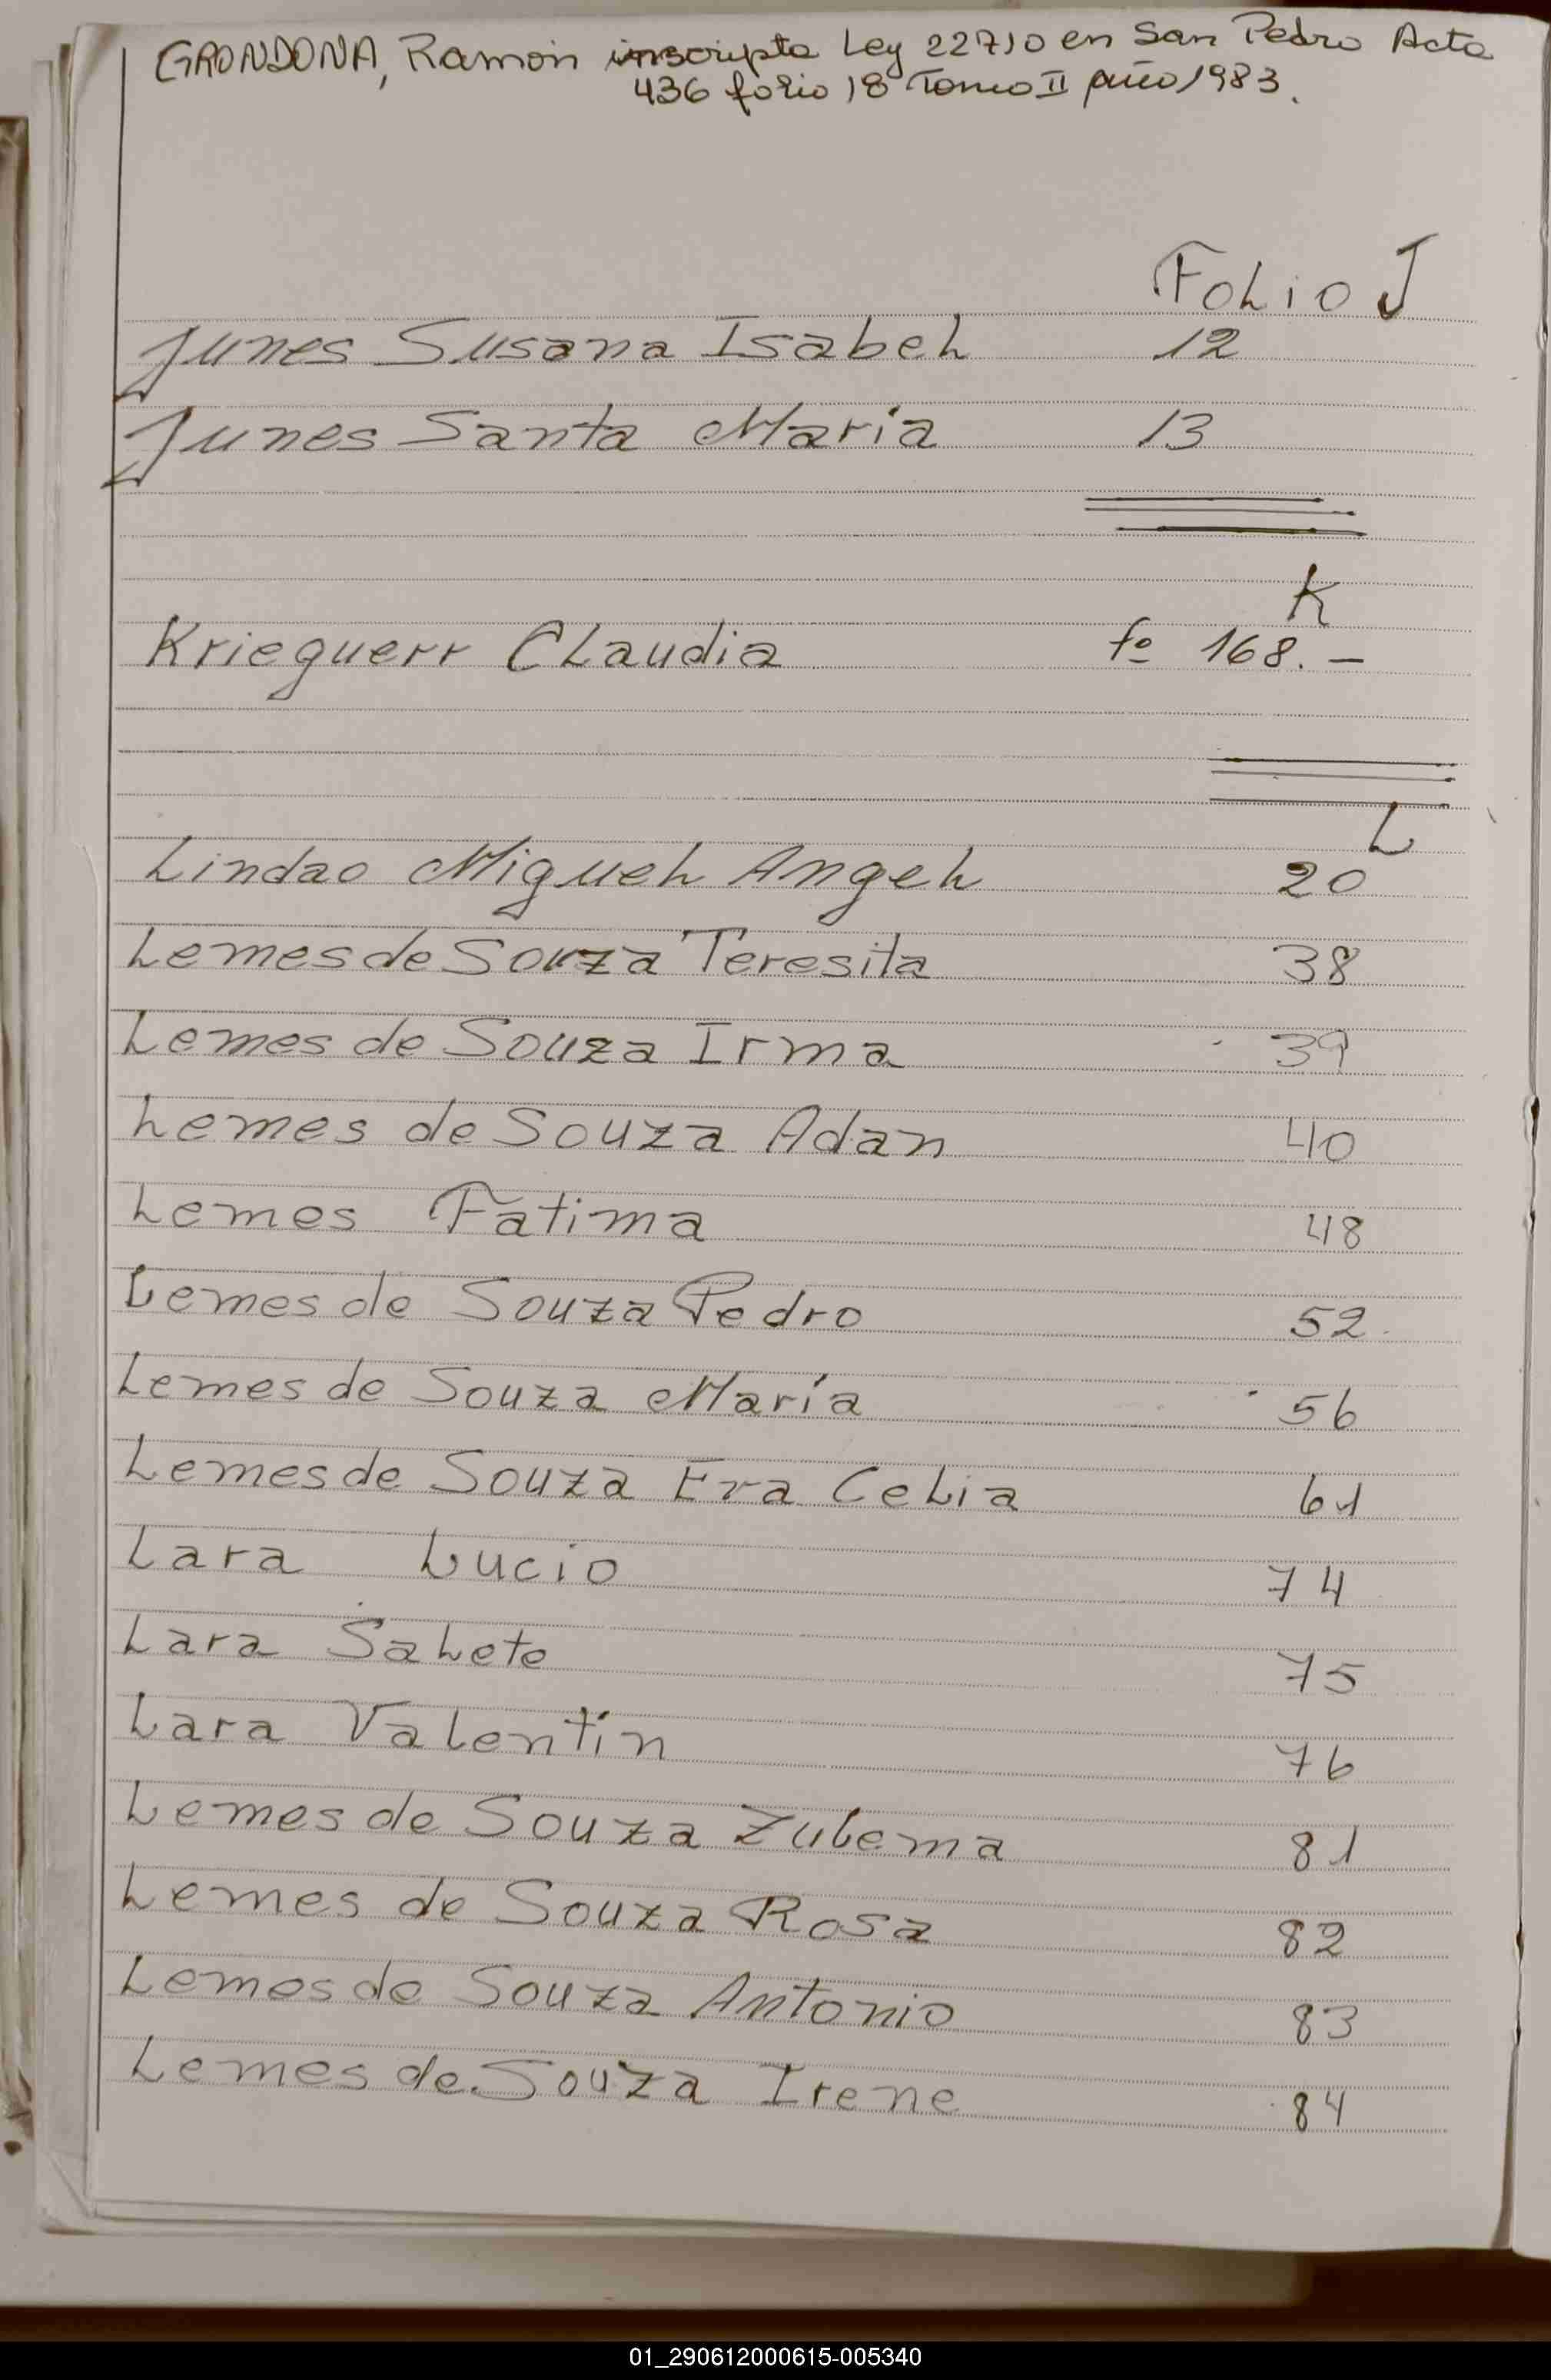 GRONDONA, Ramón inscripto Ley 22710 en San Pedro Acta
436 folio 18 Tomo II año 1983.
Folio J
Junes Susana Isabel 12
Junes Santa María 13
K
Krieguerr Claudia fo 168.-
L
Lindao Miguel Angel 20
Lemes de Souza Teresita 38
Lemes de Souza Irma 39
Lemes de Souza Adan 40
Lemes Fatima 48
Lemes de Souza Pedro 52
Lemes de Souza María 56
Lemes de Souza Eva Celia 61
Lara Lucio 74
Lara Salete 75
Lara Valentín 76
Lemes de Souza Zulema 81
Lemes de Souza Rosa 82
Lemes de Souza Antonio 83
Lemes de Souza Irene 84
01_290612000615-005340